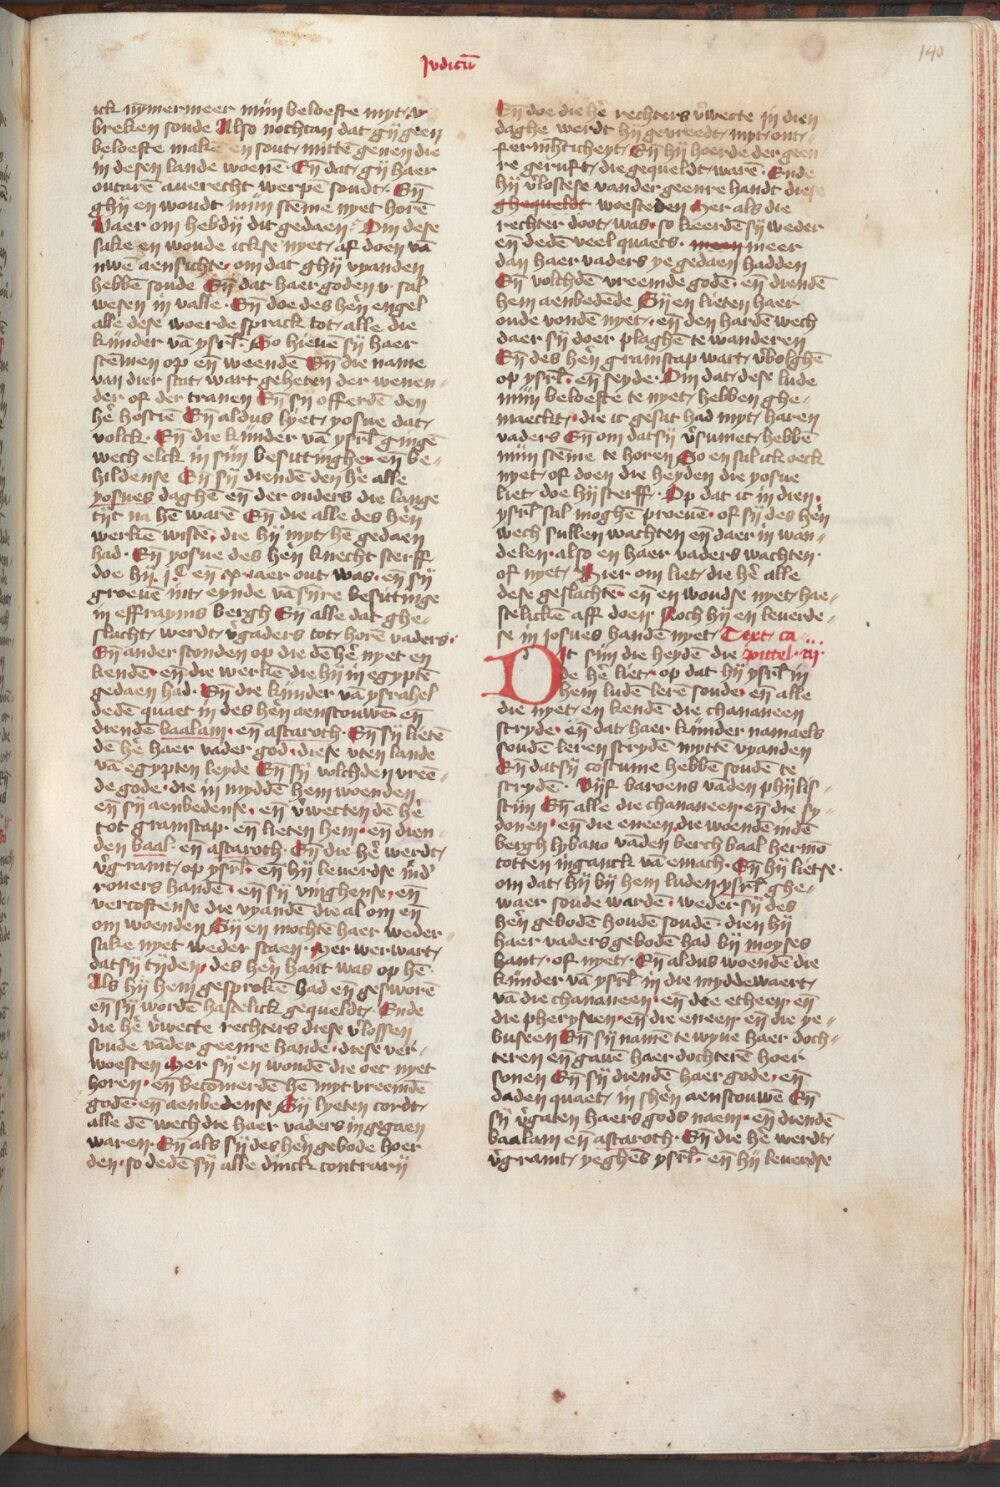 140
Judicu̅
ick nȳmermeer mijn beloefte myt v
breken soude Also nochtan dat gij geen
beloefte make̅ en sout mitte̅ genen die
in desen lande woene̅ En̅ dat gij haer
outare̅ auerecht werpe̅ soudt En̅
ghij en woudt mijn ste̅me nyet hore̅
Waer om hebdij dit gedaen Om dese
sake en woude ickse nyet af doen va̅
uwe̅ aensichte om dat ghij vyanden
hebbe̅ soude En̅ dat haer goden v sal
wesen in valle En̅ doe des he̅n engel
alle dese woerde sprack tot alle die
kijnder va̅ ysrl̅ So hieue̅ sij haer
ste̅men op en̅ weende̅ En̅ die name
van dier stat wart geheten der wenen
der of der tranen En̅ sij offerde̅ den
he̅ hostie̅ En̅ aldus lyet yosue dat
volck En̅ die kijnder va̅ ysrl̅ ginge̅
wech elck in sijn besittinghe en̅ be
hildense En̅ sij diende̅ den he̅ alle
yosues daghe̅ en̅ der ouders die lange
tijt na he̅ ware̅ En̅ die alle des he̅n
werke̅ wiste̅ die hij myt he̅ gedaen
had En̅ yosue des he̅n knecht sterff
doe hij j c en̅ x iaer out was en̅ sij
groeue̅ int eynde va̅ sijnre besittinge
in effrayms bergh En̅ alle dat ghe
slacht werdt v̕gaders tot hore̅ vaders
En̅ ander stonden op die de̅ he̅ nyet en
kende̅ en̅ die werke̅ die hij in egypte̅
gedaen had En̅ die kijnder va̅ ysrahel
dede̅ quaet in des he̅n aenscouwe̅ en̅
diende̅ baalam en̅ astaroth En̅ sij liete̅
de̅ he̅ haer vader god diese vten lande
va̅ egypten leyde En̅ sij volchden vree̅
de gode die in mydde̅ hem woenden
en̅ sij aenbedense en̅ v̕wecten de̅ he̅
tot gramscap en̅ lieten hem en̅ dien
den baal en̅ astaroth En̅ die he̅ werdt
v̕gramt op ysrl̅ en̅ hij leuerdse ind̕
rouers hande̅ en̅ sij vinghense en̅
vercoftense die vyande̅ die al om en̅
om woenden Sij en mochte̅ haer weder
sake nyet weder staen Mer werwart
datsij tijden des he̅n hant was op he̅
Als hij hem gesproke̅ had en̅ geswore̅
en̅ sij worde̅ hastelick gequeldt Ende
die he̅ v̕wecte rechters diese v̕lossen
soude va̅der geenre hande diese ver
woesten Mer sij en woude̅ die oec nyet
horen en̅ becomerde̅ he̅ myt vreemde̅
gode̅ en̅ aenbedense Sij lyeten cordt
alle de̅ wech die haer vaders in gegaen
waren En̅ als sij des he̅n gebode hoer
den so dede̅ sij alle dinck contrarij
En̅ doe die he̅ rechters v̕wecte in dien
daghe werdt hij gevreedt myt ont
fermh̅ticheyt En̅ hij hoerde der geen
re geruft die gequeldt ware̅ Ende
hij v̕lostese vander geenre handt diese
ghequeldt woesteden Mer als die
rechter doot was so keerde̅ sij weder
en̅ dede̅ veel quaets meer
dan haer vaders ye gedaen hadden
En̅ volchde̅ vreemde gode̅ en̅ diende̅
hem aenbedende Sij en lieten haer
oude vonde̅ nyet en̅ den harde̅ wech
daer sij doer plaghe̅ te wanderen
En̅ des he̅n gramscap wart v̕bolghe̅
op ysrl̅ en̅ seyde Om dat dese lude
mijn beloefte te nyet hebben ghe
maeckt die ic gesat had myt haren
vaders En̅ om datsij v̕sumet hebbe̅
mijn ste̅me te horen So en sal ick oeck
nyet of doen die heyden die yosue
liet doe hij sterff Op dat ic in dien
ysrl̅ sal moghe̅ proeue̅ of sij des he̅n
wech sullen wachten en̅ daer in wan
delen also en haer vaders wachten
of nyet Hier om liet die he̅ alle
dese geslachte̅ en̅ en woudse nyet hae
stelicke̅ aff doen Noch hij en leuerde
se in josues hande̅ nyet Text ca
pittel iij
Dit sijn die heyde̅ die
de he̅ liet op dat hij ysrl̅ in
hem lude̅ lere̅ soude en̅ alle
die nyet en kende̅ die chananeen
stryde en̅ dat haer kijnder namaels
soude̅ leren stryde̅ mytte̅ vyanden
En̅ datsij costume hebbe̅ soude̅ te
stryde̅ Vijf baroens va̅den phijlis
stijn En̅ alle die chananeen en̅ die sy
donen en̅ die eneen die woende̅ inde̅
bergh lybano va̅den berch baal hermo̅
totten inganck va̅ emach En̅ hij lietse
om dat hij bij hem luden ysrl̅ ghe
waer soude warde̅ weder sij des
he̅n gebode̅ houde̅ soude̅ dien hij
haer vaders gebode̅ had bij moyses
hant of nyet En̅ aldus woende̅ die
kijnder va̅ ysrl̅ in die myddewaert
va̅ die chananeen en̅ dee etheen en̅
die pheryseen en̅ die eneen en̅ die ye
buseen En̅ sij name̅ te wyue haer doch
teren en̅ gaue̅ haer dochtere̅ hoer
sonen En̅ sij diende̅ haer gode en̅
daden quaet in she̅n aenscouwe̅ En̅
sij v̕gaten haers gods naem en̅ diende̅
baalam en̅ astaroth En̅ die he̅ werdt
v̕gramt yeghe̅s ysrl̅ en̅ hij leuerdse